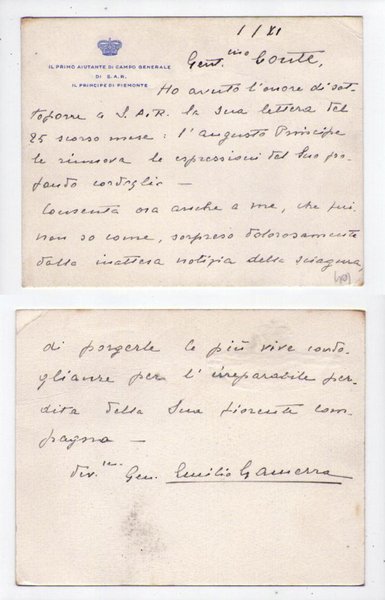 1/XI
IL PRIMO AIUTANTE DI CAMPO GENERALE
DI S.A.R.
IL PRINCIPE DI PIEMONTE
Gent.mo Conte,
Ho avuto l'onore di sot-
toporre a S.A.R. la Sua lettera del
25 scorso mese: l'augusto Principe
le rinnova le espressioni del Suo pro-
fondo cordoglio —
Consenta ora anche a me, che fui
non so come, sorpreso dolorosamente
dalla inattesa notizia della sciagura,
di porgerle le più vive condo-
glianze per l'irreparabile per-
dita della Sua fiorente com-
pagna —
dev.mo Gen. Emilio Gamerra